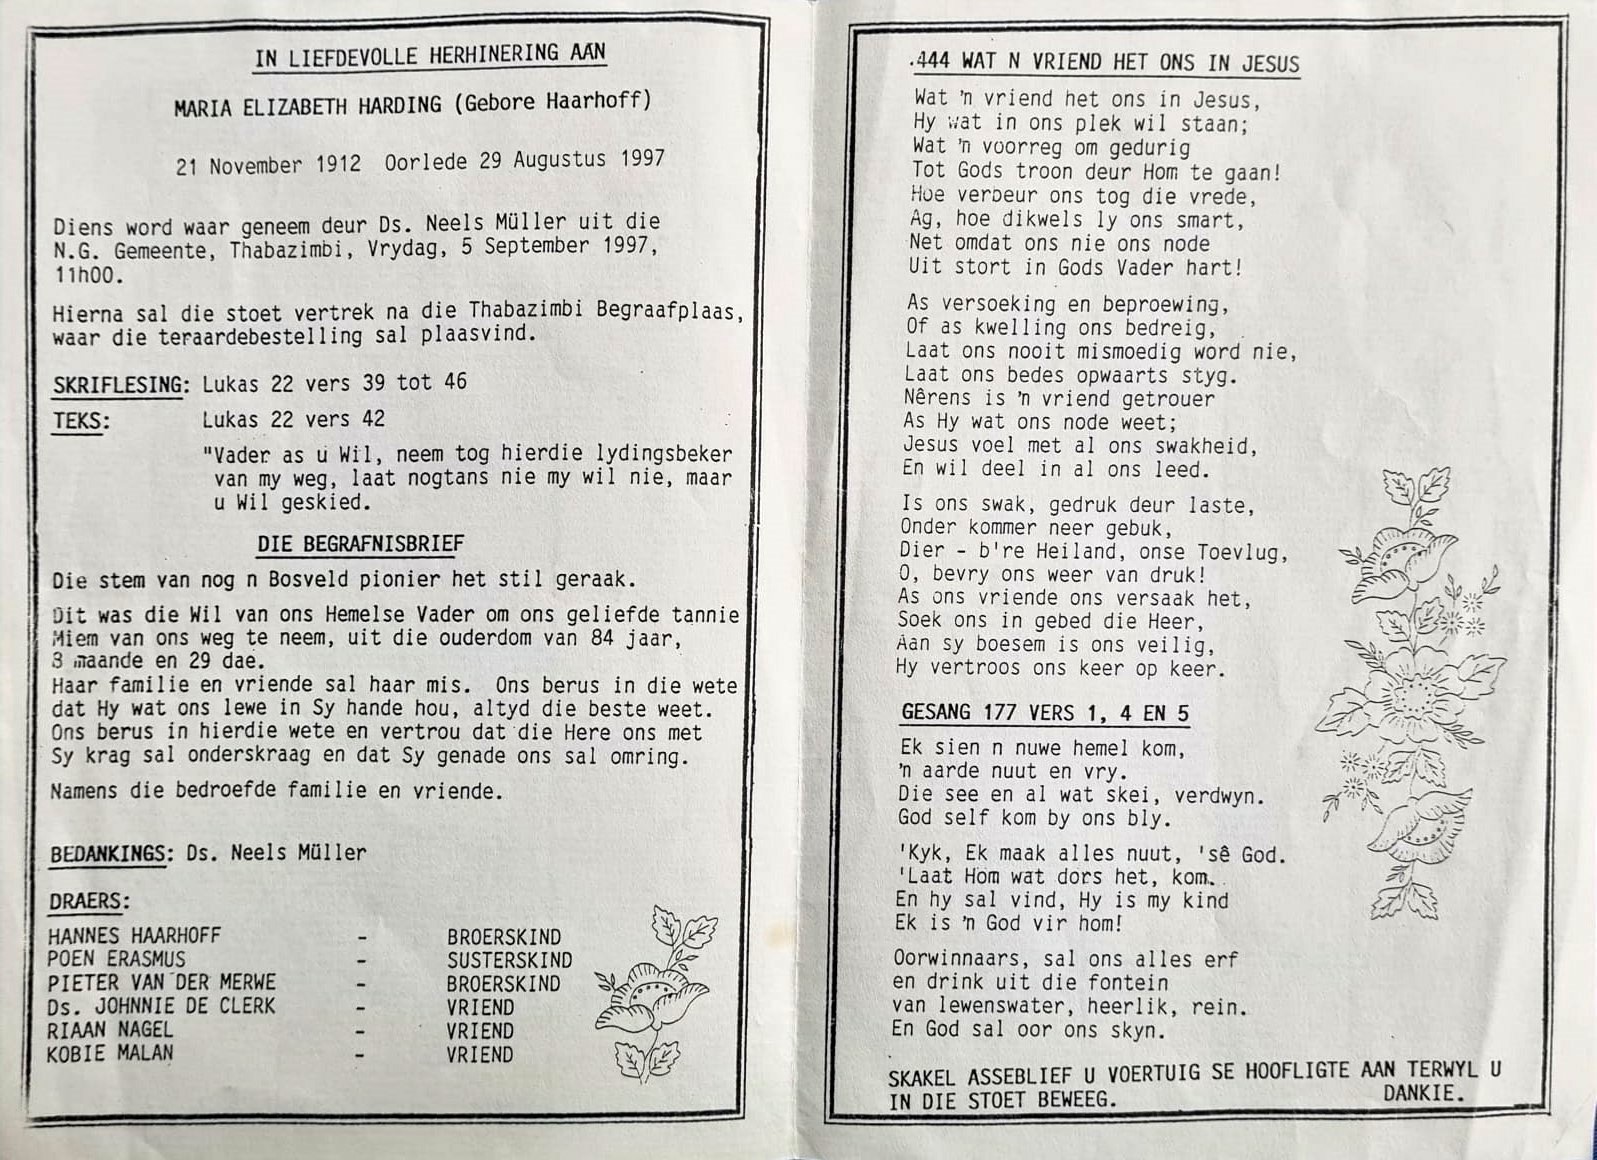 IN LIEFDEVOLLE HERHINERING AAN
MARIA ELIZABETH HARDING (Gebore Haarhoff)
21 November 1912 Oorlede 29 Augustus 1997
Diens word waar geneem deur Ds. Neels Müller uit die
N.G. Gemeente, Thabazimbi, Vrydag, 5 September 1997,
11h00.
Hierna sal die stoet vertrek na die Thabazimbi Begraafplaas,
waar die teraardebestelling sal plaasvind.
SKRIFLESING: Lukas 22 vers 39 tot 46
TEKS: Lukas 22 vers 42
"Vader as u Wil, neem tog hierdie lydingsbeker
van my weg, laat nogtans nie my wil nie, maar
u Wil geskied.
DIE BEGRAFNISBRIEF
Die stem van nog n Bosveld pionier het stil geraak.
Dit was die Wil van ons Hemelse Vader om ons geliefde tannie
Miem van ons weg te neem, uit die ouderdom van 84 jaar,
3 maande en 29 dae.
Haar familie en vriende sal haar mis. Ons berus in die wete
dat Hy wat ons lewe in Sy hande hou, altyd die beste weet.
Ons berus in hierdie wete en vertrou dat die Here ons met
Sy krag sal onderskraag en dat Sy genade ons sal omring.
Namens die bedroefde familie en vriende.
BEDANKINGS: Ds. Neels Müller
DRAERS:
HANNES HAARHOFF - BROERSKIND
POEN ERASMUS - SUSTERSKIND
PIETER VAN DER MERWE - BROERSKIND
Ds. JOHNNIE DE CLERK - VRIEND
RIAAN NAGEL - VRIEND
KOBIE MALAN - VRIEND
.444 WAT N VRIEND HET ONS IN JESUS
Wat 'n vriend het ons in Jesus,
Hy wat in ons plek wil staan;
Wat 'n voorreg om gedurig
Tot Gods troon deur Hom te gaan!
Hoe verbeur ons tog die vrede,
Ag, hoe dikwels ly ons smart,
Net omdat ons nie ons node
Uit stort in Gods Vader hart!
As versoeking en beproewing,
Of as kwelling ons bedreig,
Laat ons nooit mismoedig word nie,
Laat ons bedes opwaarts styg.
Nêrens is 'n vriend getrouer
As Hy wat ons node weet;
Jesus voel met al ons swakheid,
En wil deel in al ons leed.
Is ons swak, gedruk deur laste,
Onder kommer neer gebuk,
Dier - b're Heiland, onse Toevlug,
O, bevry ons weer van druk!
As ons vriende ons versaak het,
Soek ons in gebed die Heer,
Aan sy boesem is ons veilig,
Hy vertroos ons keer op keer.
GESANG 177 VERS 1, 4 EN 5
Ek sien n nuwe hemel kom,
'n aarde nuut en vry.
Die see en al wat skei, verdwyn.
God self kom by ons bly.
'Kyk, Ek maak alles nuut, 'sê God.
'Laat Hom wat dors het, kom.
En hy sal vind, Hy is my kind
Ek is 'n God vir hom!
Oorwinnaars, sal ons alles erf
en drink uit die fontein
van lewenswater, heerlik, rein.
En God sal oor ons skyn.
SKAKEL ASSEBLIEF U VOERTUIG SE HOOFLIGTE AAN TERWYL U
IN DIE STOET BEWEEG. DANKIE.